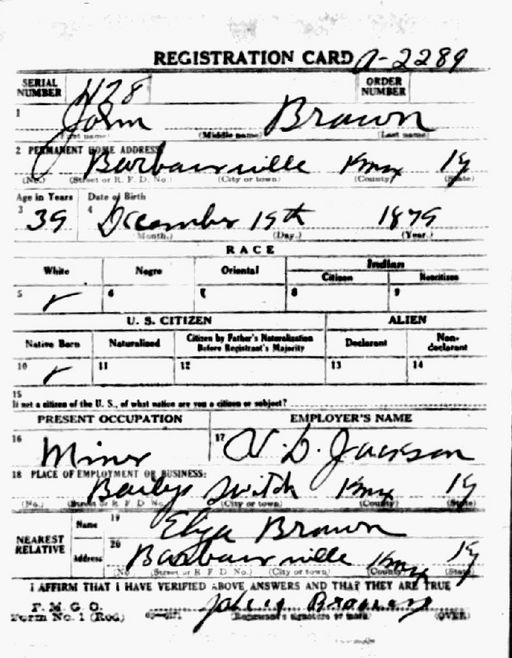 REGISTRATION CARD A-2289
SERIAL NUMBER 428 ORDER NUMBER
1 John Brown
(First name) (Middle name) (Last name)
2 PERMANENT HOME ADDRESS
Barbourville Knox Ky
(No.) (Street or R. F. D. No.) (City or town) (County) (State)
Age in Years Date of Birth
3 39 4 December 19th 1879
(Month.) (Day.) (Year.)
RACE
White Negro Oriental Indian
Citizen Noncitizen
5 ✓ 6 7 8 9
U. S. CITIZEN ALIEN
Native Born Naturalized Citizen by Father's Naturalization Before Registrant's Majority Declarant Non-declarant
10 ✓ 11 12 13 14
15
If not a citizen of the U. S., of what nation are you a citizen or subject?
PRESENT OCCUPATION EMPLOYER'S NAME
16 Miner 17 Jackson
18 PLACE OF EMPLOYMENT OR BUSINESS:
Bailys Switch Knox Ky
(No.) (Street or R. F. D. No.) (City or town) (County) (State)
NEAREST RELATIVE
Name 19 Eliza Brown
Address 20 Barbourville Knox Ky
(No.) (Street or R. F. D. No.) (City or town) (County) (State)
I AFFIRM THAT I HAVE VERIFIED ABOVE ANSWERS AND THAT THEY ARE TRUE
P. M. G. O.
Form No. 1 (Red) (Registrant's signature or mark) (OVER)